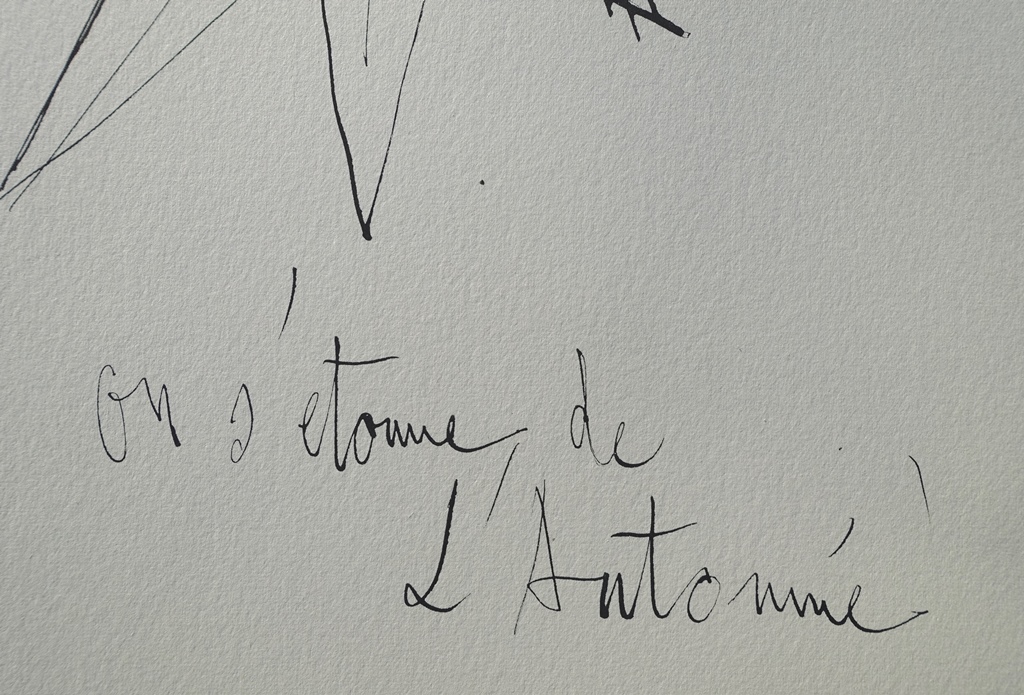 On s'étonne, de
L'Antonnié